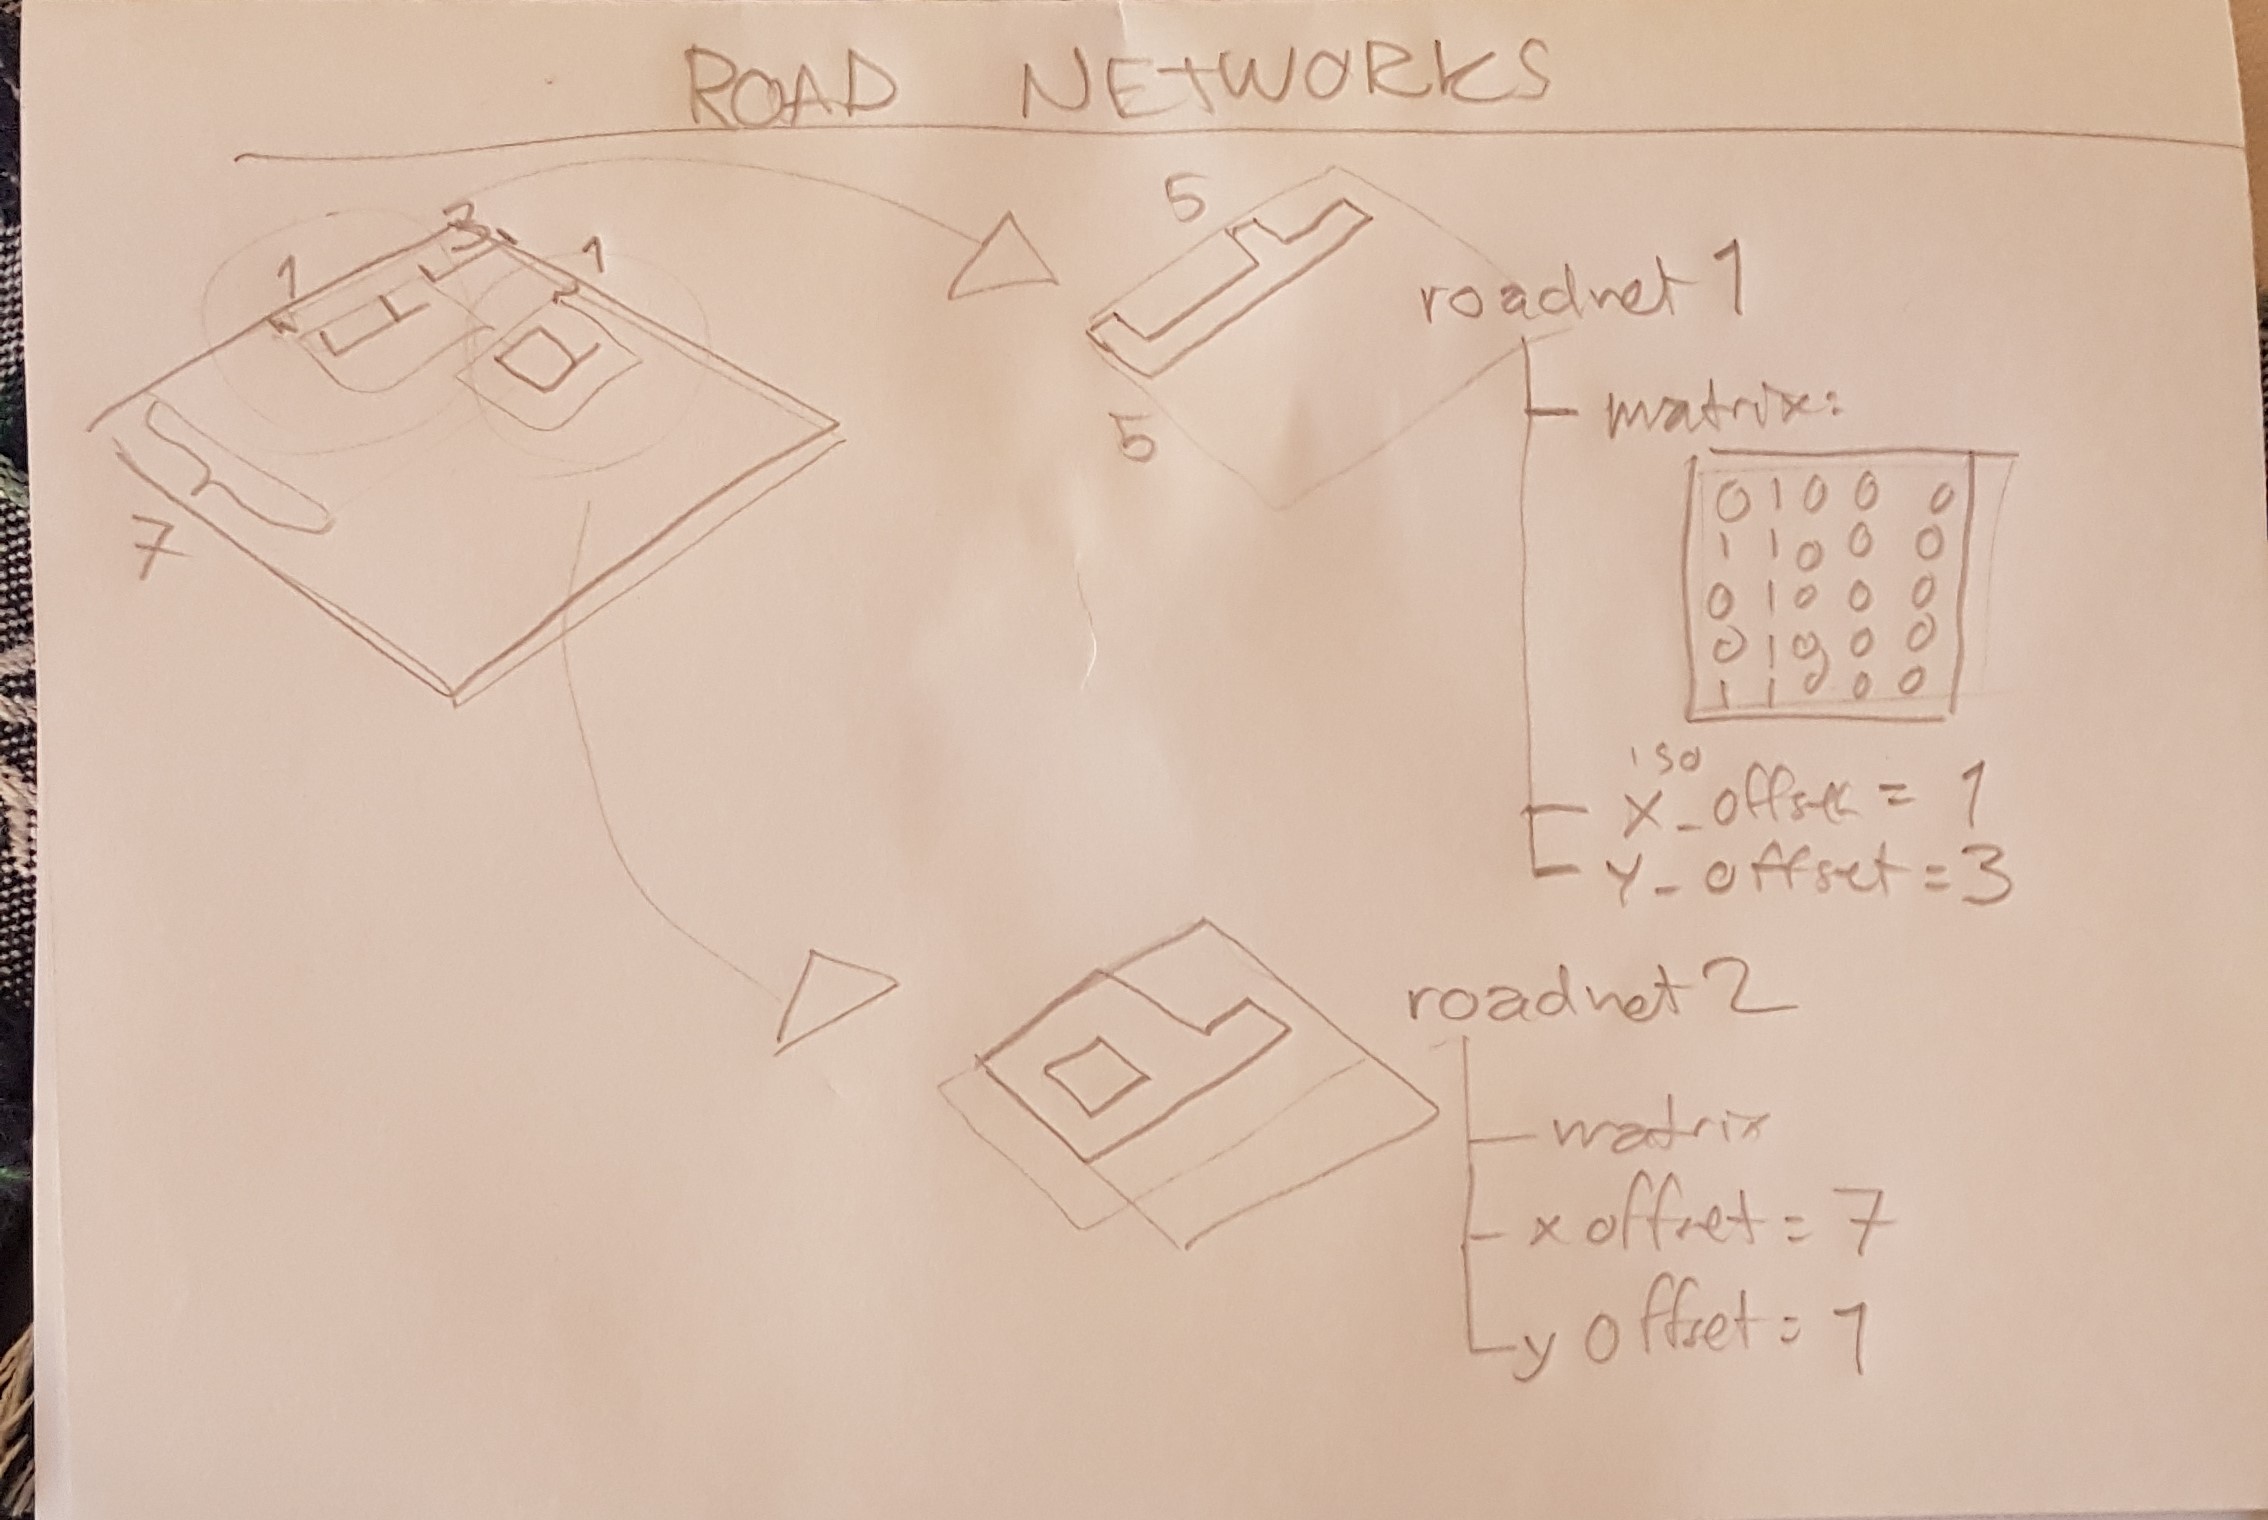 ROAD NETWORKS
1
3
1
7
5
5
roadnet 1
matrix:
0 1 0 0 0
1 1 0 0 0
0 1 0 0 0
0 1 0 0 0
1 1 0 0 0
iso
X_offset = 1
Y_offset = 3
roadnet 2
matrix
x offset = 7
y offset = 1